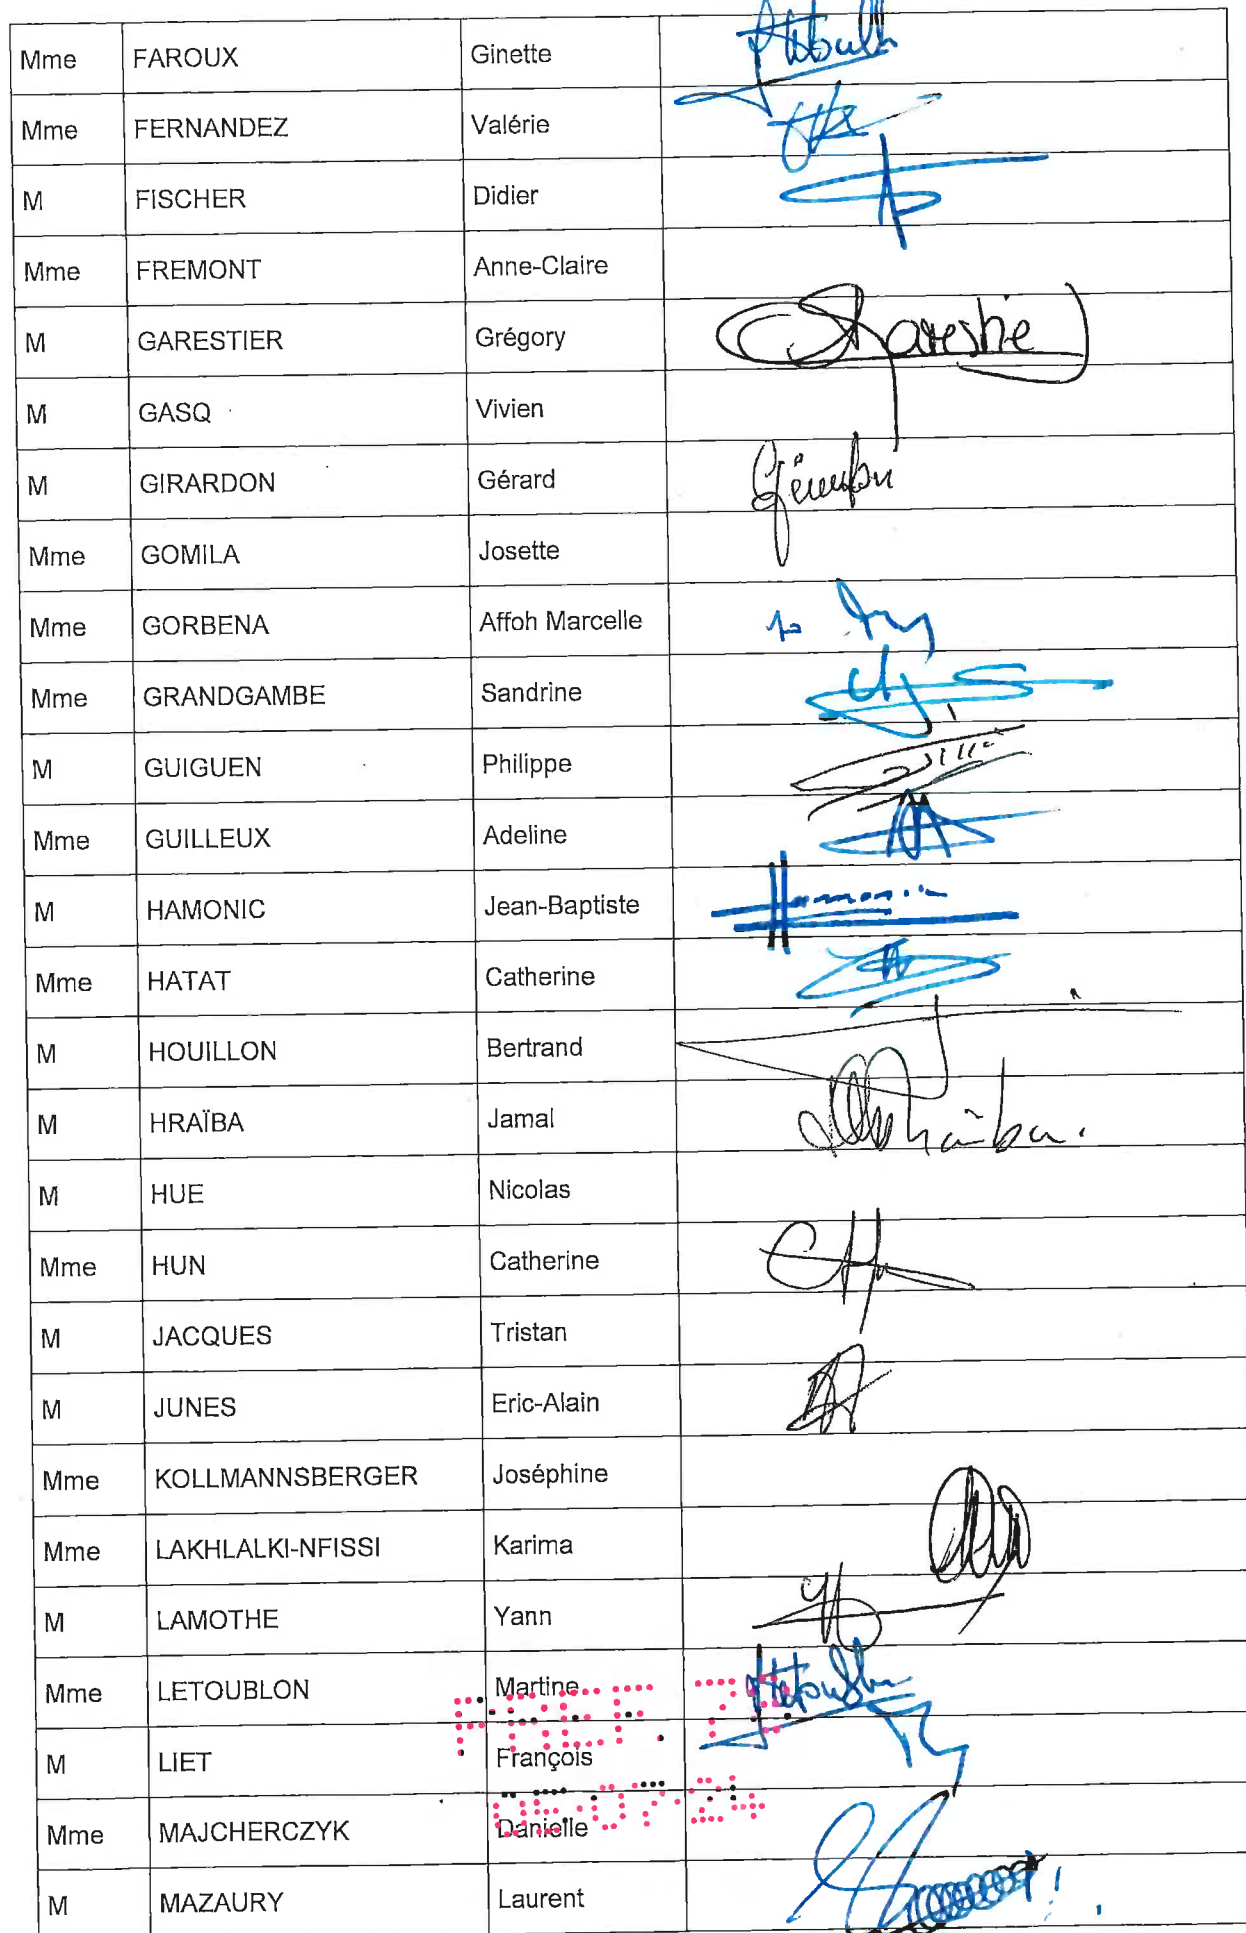 Mme FAROUX Ginette Letoublon
Mme FERNANDEZ Valérie
M FISCHER Didier
Mme FREMONT Anne-Claire
M GARESTIER Grégory Garestier
M GASQ Vivien
M GIRARDON Gérard
Mme GOMILA Josette
Mme GORBENA Affoh Marcelle
Mme GRANDGAMBE Sandrine
M GUIGUEN Philippe
Mme GUILLEUX Adeline
M HAMONIC Jean-Baptiste Hamonic
Mme HATAT Catherine
M HOUILLON Bertrand
M HRAÏBA Jamal Hraïba
M HUE Nicolas
Mme HUN Catherine
M JACQUES Tristan
M JUNES Eric-Alain
Mme KOLLMANNSBERGER Joséphine
Mme LAKHLALKI-NFISSI Karima
M LAMOTHE Yann
Mme LETOUBLON Martine Letoublon
PREF. 78
M LIET François
05-07-24
Mme MAJCHERCZYK Danielle
M MAZAURY Laurent